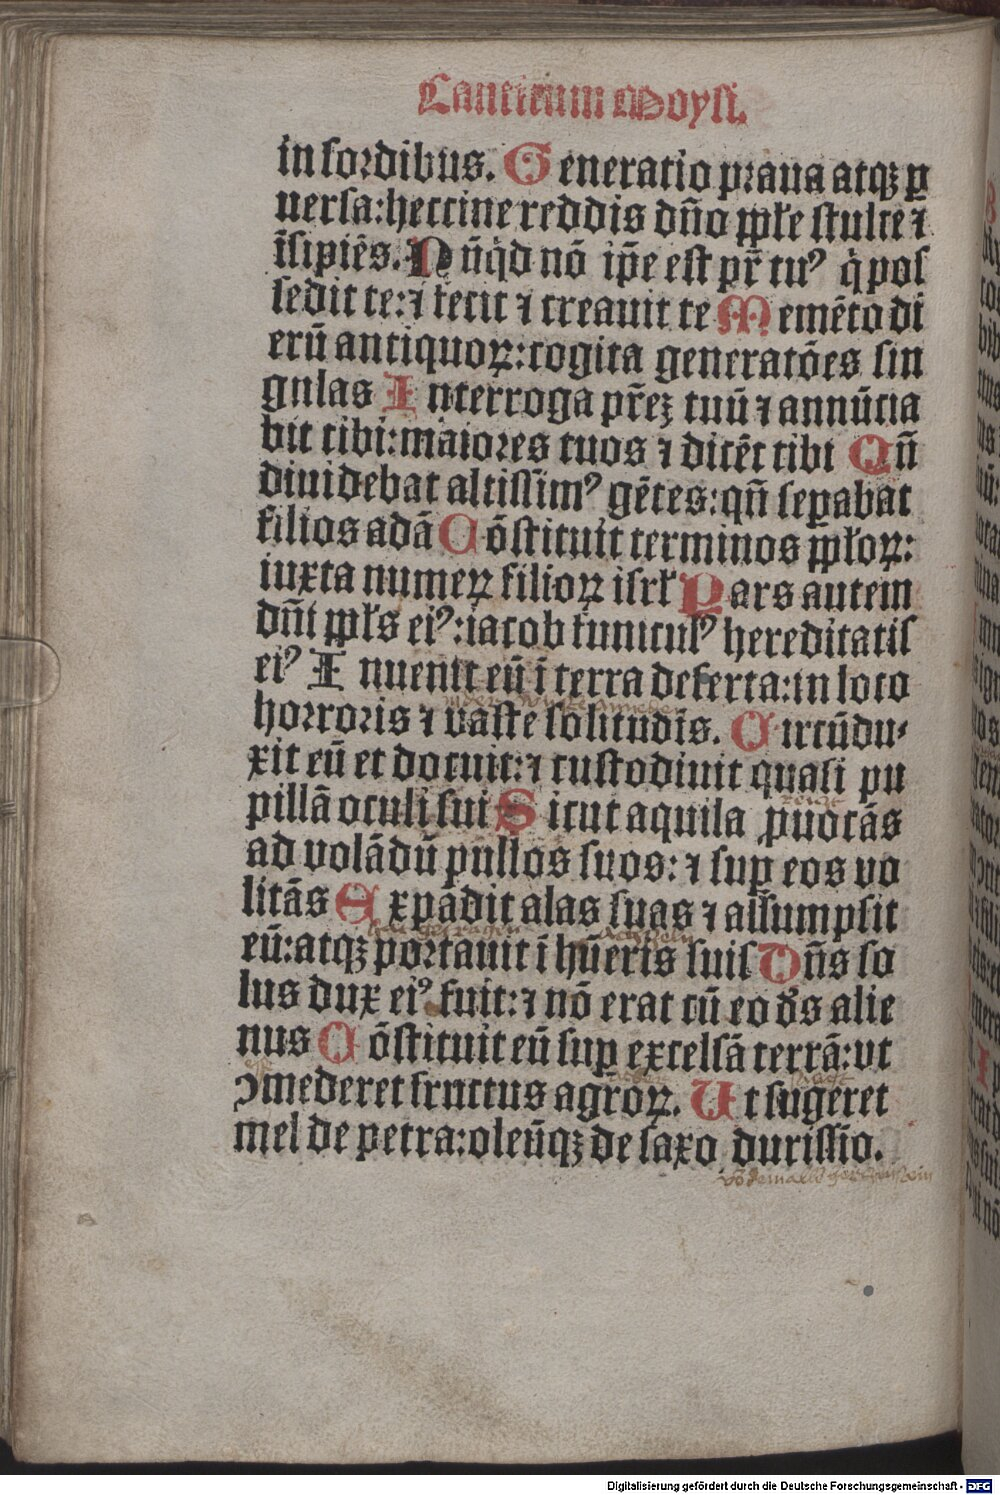 Canticum Moysi.
in sordibus. Generatio praua atqꝫ ꝑ
uersa:heccine reddis dño ppłe stulte ⁊
ĩsipiẽs. Nũqd nõ ip̃e est pr̃ tuꝰ q̇ pos
sedit te:⁊ fecit ⁊ creauit te Memẽto di
erũ antiquoꝝ:cogita generatões sin
gulas Interroga pr̃eꝫ tuũ ⁊ annũcia
bit tibi:maiores tuos ⁊ dicẽt tibi Qñ
diuidebat altissĩmꝰ gẽtes:qñ seꝑabat
filios adã Cõstituit terminos ppłoꝝ:
iuxta numeꝝ filioꝝ isrł Pars autem
dñi ppłs eiꝰ:iacob funiculꝰ hereditatis
eiꝰ Inuenit eũ ĩ terra deserta:in loco
horroris ⁊ vaste solitudĩs. Circũdu⸗
xit eũ et docuit:⁊ custodiuit quasi pu
pillã oculi sui Sicut aquila ꝓuocãs
ad volãdũ pullos suos:⁊ suꝑ eos vo
litãs Expãdit alas suas ⁊ assumpsit
eũ:atqꝫ portauit ĩ hũeris suis Dñs so
lus dux eiꝰ fuit:⁊ nõ erat cũ eo ds̃ alie
nus Cõstituit eũ suꝑ excelsã terrã:vt
ꝯmederet fructus agroꝝ. Ut sugeret
mel de petra:oleũqꝫ de saxo durissĩo.
Digitalisierung gefördert durch die Deutsche Forschungsgemeinschaft - DFG